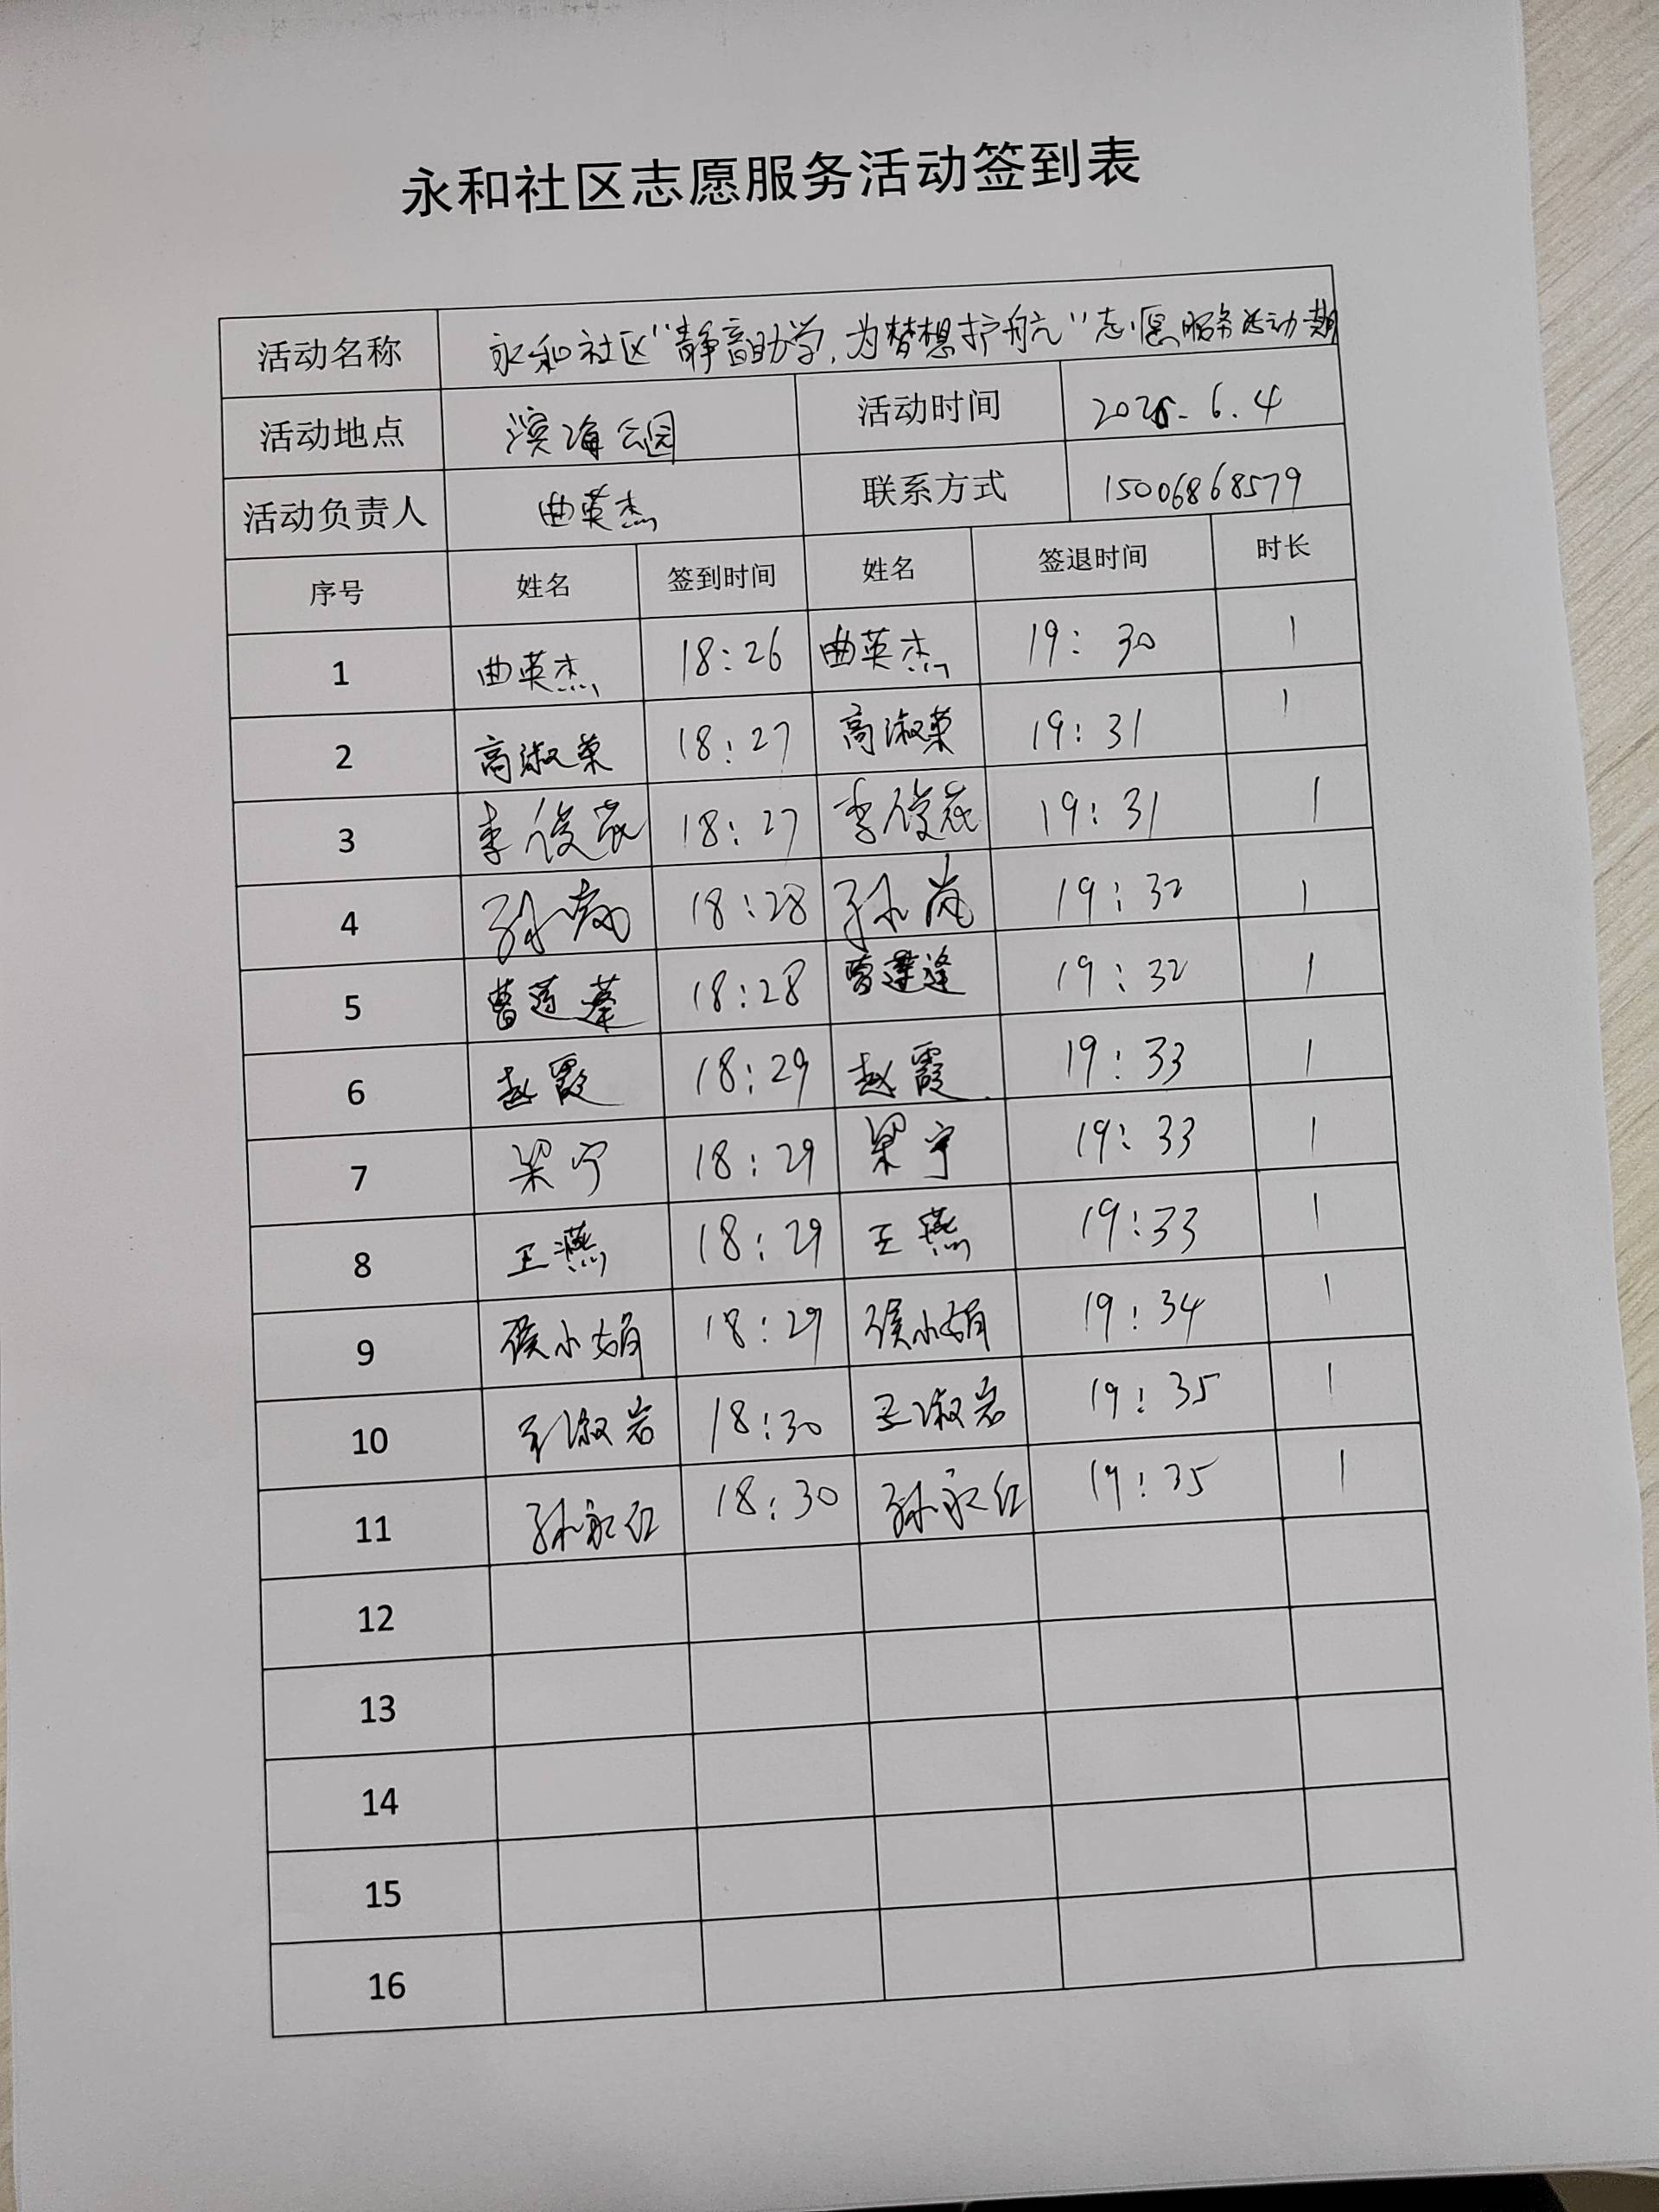 永和社区志愿服务活动签到表
活动名称 永和社区“静音助学,为梦想护航”志愿服务活动
活动地点 滨海公园 活动时间 2025.6.4
活动负责人 曲英杰 联系方式 15006868579
序号 姓名 签到时间 姓名 签退时间 时长
1 曲英杰 18:26 曲英杰 19:30 1
2 高淑荣 18:27 高淑荣 19:31 1
3 李俊花 18:27 李俊花 19:31 1
4 孙岚 18:28 孙岚 19:32 1
5 曹莲 18:28 曹莲 19:32 1
6 赵霞 18:29 赵霞 19:33 1
7 梁宁 18:29 梁宁 19:33 1
8 王燕 18:29 王燕 19:33 1
9 侯小娟 18:29 侯小娟 19:34 1
10 王淑岩 18:30 王淑岩 19:35 1
11 孙永红 18:30 孙永红 19:35 1
12
13
14
15
16